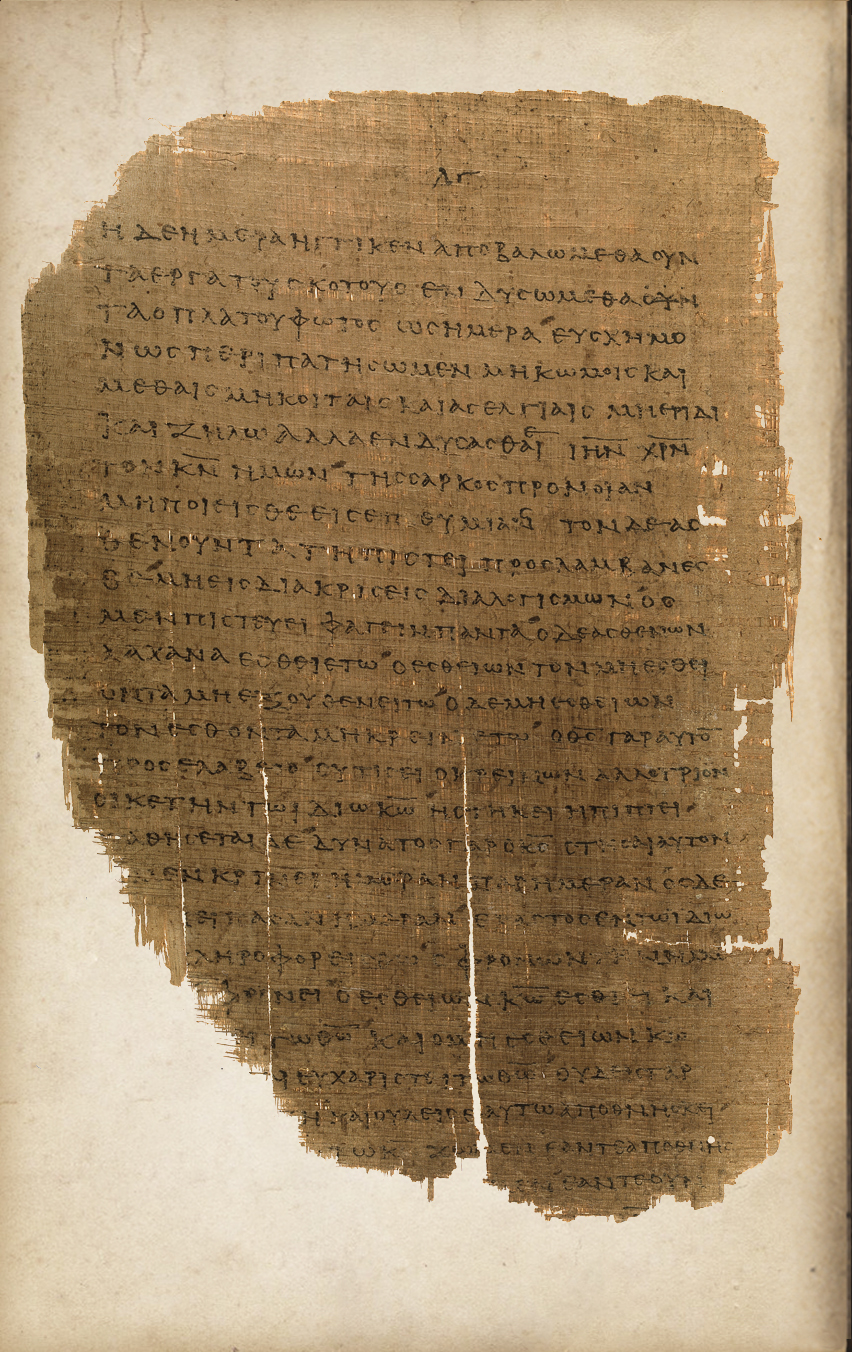 ΛΓ
Η ΔΕ ΗΜΕΡΑ ΗΓΓΙΚΕΝ ΑΠΟΒΑΛΩΜΕΘΑ ΟΥΝ
ΤΑ ΕΡΓΑ ΤΟΥ ΣΚΟΤΟΥΣ ΕΝΔΥΣΩΜΕΘΑ ΟΥΝ
ΤΑ ΟΠΛΑ ΤΟΥ ΦΩΤΟΣ ΩΣ ΗΜΕΡΑ ΕΥΣΧΗΜΟ
ΝΩΣ ΠΕΡΙΠΑΤΗΣΩΜΕΝ ΜΗ ΚΩΜΟΙΣ ΚΑΙ
ΜΕΘΑΙΣ ΜΗ ΚΟΙΤΑΙΣ ΚΑΙ ΑΣΕΛΓΙΑΙΣ ΜΗ ΕΡΙΔΙ
ΚΑΙ ΖΗΛΩ ΑΛΛΑ ΕΝΔΥΣΑΣΘΑΙ ΙΗΝ ΧΡΝ
ΤΟΝ ΚΝ ΗΜΩΝ ΤΗΣ ΣΑΡΚΟΣ ΠΡΟΝΟΙΑΝ
ΜΗ ΠΟΙΕΙΣΘΕ ΕΙΣ ΕΠΙΘΥΜΙΑΣ ΤΟΝ ΔΕ ΑΣ
ΘΕΝΟΥΝΤΑ ΤΗ ΠΙΣΤΕΙ ΠΡΟΣΛΑΜΒΑΝΕΣ
ΘΕ ΜΗ ΕΙΣ ΔΙΑΚΡΙΣΕΙΣ ΔΙΑΛΟΓΙΣΜΩΝ ΟΣ
ΜΕΝ ΠΙΣΤΕΥΕΙ ΦΑΓΕΙΝ ΠΑΝΤΑ Ο ΔΕ ΑΣΘΕΝΩΝ
ΛΑΧΑΝΑ ΕΣΘΕΙΕΤΩ Ο ΕΣΘΕΙΩΝ ΤΟΝ ΜΗ ΕΣΘΕΙ
ΟΝΤΑ ΜΗ ΕΞΟΥΘΕΝΕΙΤΩ Ο ΔΕ ΜΗ ΕΣΘΕΙΩΝ
ΤΟΝ ΕΣΘΟΝΤΑ ΜΗ ΚΡΕΙΝΕΤΩ Ο ΘΣ ΓΑΡ ΑΥΤΟ
ΠΡΟΣΕΛΑΒΕΤΟ ΣΥ ΤΙΣ ΕΙ Ο ΚΡΕΙΝΩΝ ΑΛΛΟΤΡΙΟΝ
ΟΙΚΕΤΗΝ ΤΩΙ ΙΔΙΩ ΚΩ ΣΤΗΚΕΙ Η ΠΙΠΤΕΙ
ΑΘΗΣΕΤΑΙ ΔΕ ΔΥΝΑΤΟΣ ΓΑΡ Ο ΚΣ ΣΤΗΣΑΙ ΑΥΤΟΝ
ΜΕΝ ΚΡΙΝΕΙ ΗΜΕΡΑΝ ΠΑΡ ΗΜΕΡΑΝ ΟΣ ΔΕ
ΝΕΙ ΠΑΣΑΝ ΗΜΕΡΑΝ ΕΚΑΣΤΟΣ ΕΝ ΤΩΙ ΙΔΙΩ
ΛΗΡΟΦΟΡΕΙ ΦΡΟΝΩΝ
ΦΡΟΝΕΙ Ο ΕΣΘΕΙΩΝ ΚΩ ΕΣΘΙ ΚΑΙ
ΤΩ ΘΩ ΚΑΙ Ο ΜΗ ΕΣΘΕΙΩΝ ΚΩ
ΕΥΧΑΡΙΣΤΕΙ ΤΩ ΘΩ ΟΥΔΕΙΣ ΓΑΡ
Η ΚΑΙ ΟΥΔΕΙΣ ΕΑΥΤΩ ΑΠΟΘΝΗΣΚΕΙ
ΕΑΝ ΤΕ ΑΠΟΘΝΗΣ
ΕΑΝ ΤΕ ΟΥΝ